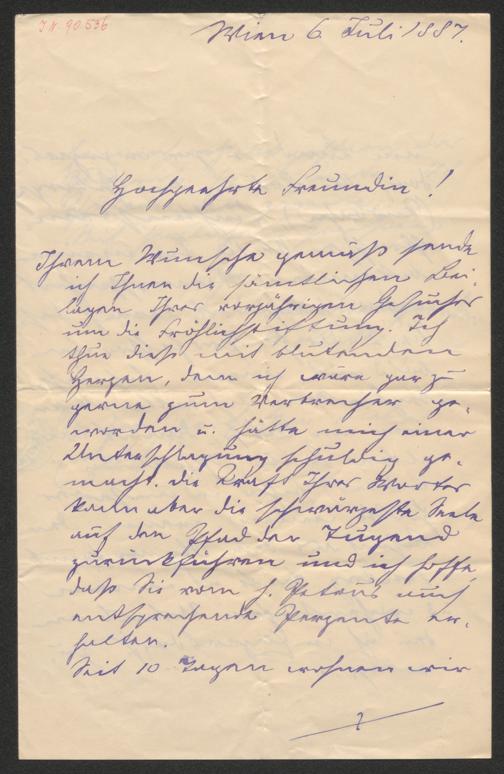 J.N. 90.536
Wien 6 Juli 1887.
Hochgeehrte Freundin!
Ihrem Wunsche gemäß sende
ich Ihnen die sämtlichen Bei-
lagen Ihres vorjährigen Gesuches
um die Fröhlichstiftung. Ich
thue dieß mit blutendem
Herzen, denn ich wäre gar zu
gerne zum Verbrecher ge-
worden u. hätte mich einer
Unterschlagung schuldig ge-
macht. Die Kraft Ihres Wortes
kann aber die schwärzeste Seele
auf den Pfad der Tugend
zurückführen und ich hoffe,
daß Sie vom h. Petrus auch
entsprechende Perzente er-
halten.
Seit 10 Tagen wohnen wir